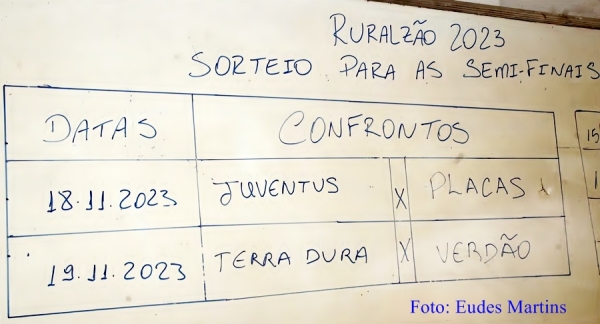 RURALZÃO 2023
SORTEIO PARA AS SEMI-FINAIS
DATAS CONFRONTOS
18.11.2023 JUVENTUS X PLACAS
19.11.2023 TERRA DURA X VERDÃO
15
1
Foto: Eudes Martins